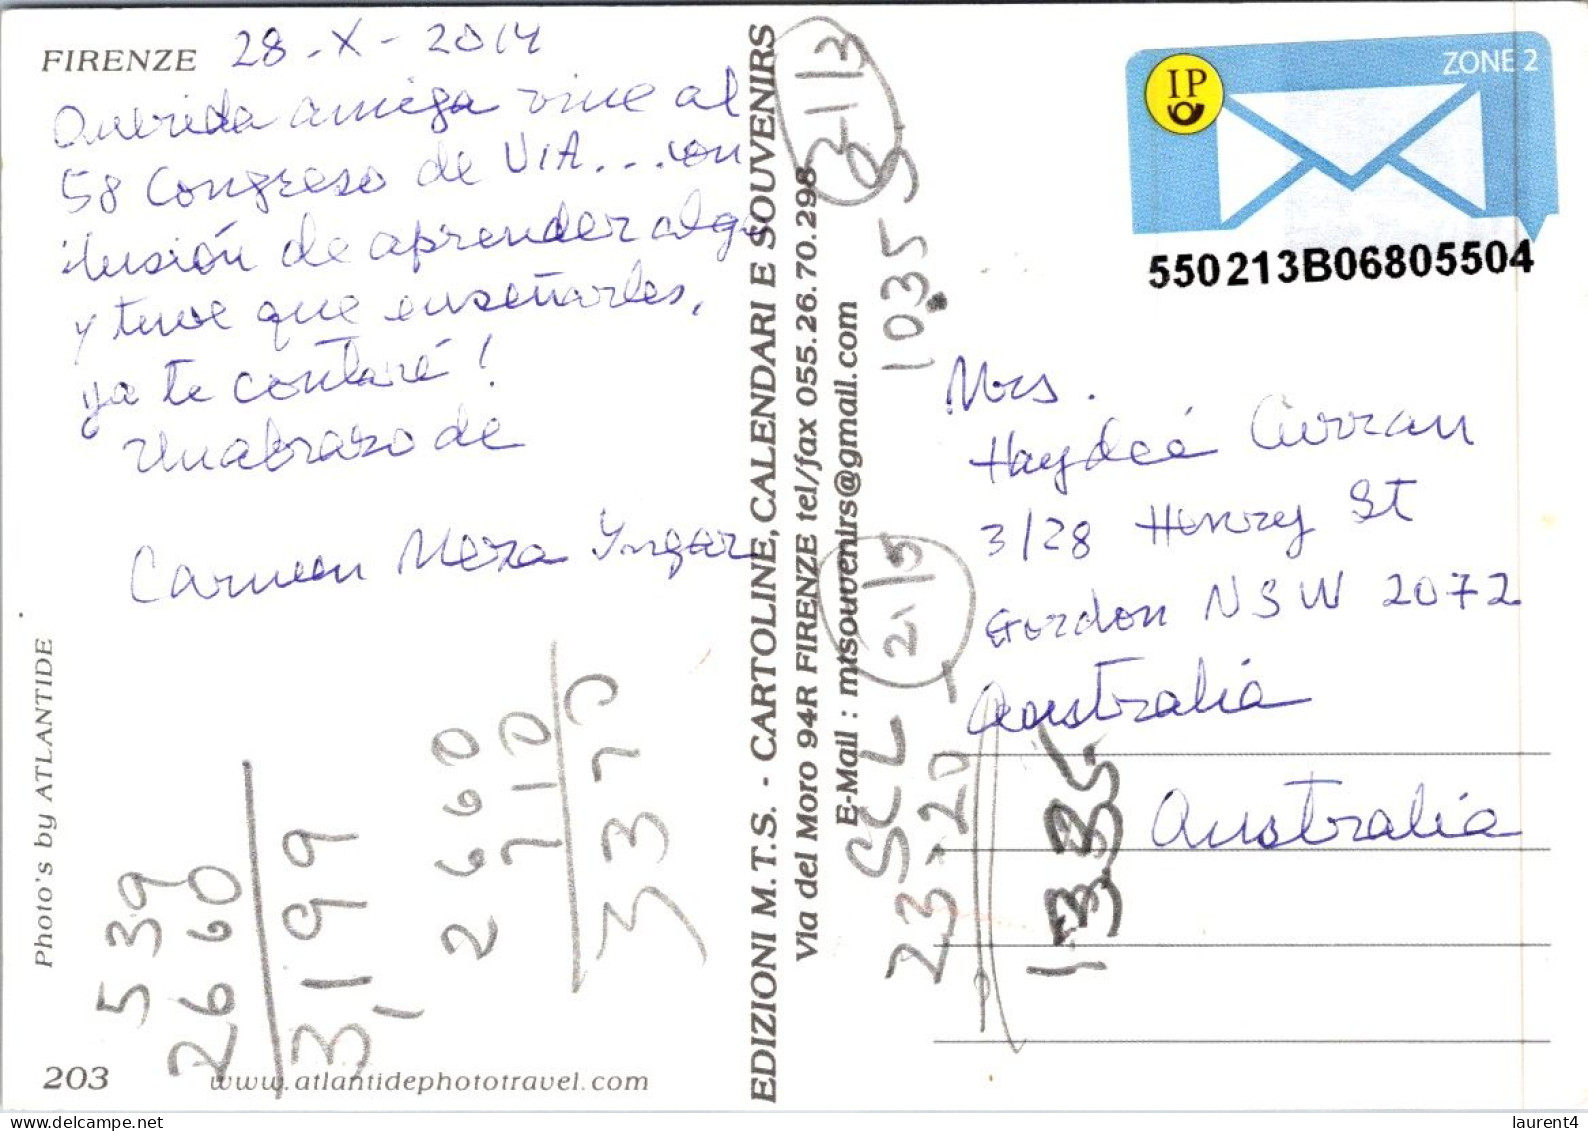 FIRENZE 28-X-2014
Querida amiga vine al
58 Congreso de VIA... con
ilusión de aprender algo
y tuve que enseñarles,
ya te contaré!
Un abrazo de
Carmen Meza
Photo's by ATLANTIDE
203
www.atlantidephototravel.com
539
2660
3199
2660
710
3370
EDIZIONI M.T.S. - CARTOLINE, CALENDARI E SOUVENIRS
Via del Moro 94R FIRENZE tel/fax 055.26.70.298
E-Mail : mtsouvenirs@gmail.com
SCL
21/5
23.20
1035
1335
IP
ZONE 2
550213B06805504
Mrs.
Haydeé Curran
3/28 Henry St
Gordon NSW 2072
Australia
Australia
laurent4